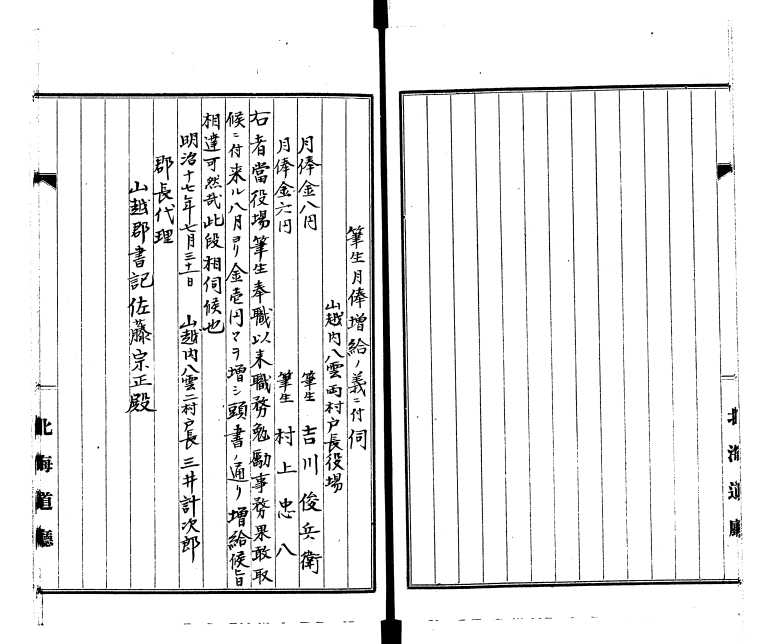 筆生月俸増給ノ義ニ付伺
山越内八雲両村戸長役場
月俸金八円 筆生 吉川俊兵衛
月俸金六円 筆生 村上忠八
右者當役場筆生奉職以来職務勉勵事務果敢取
候ニ付来ル八月ヨリ金壱円マヲ増シ頭書ノ通リ増給候旨
相達可然哉此段相伺候也
明治十七年七月三十一日 山越内八雲二村戸長 三井計次郎
郡長代理
山越郡書記佐藤宗正殿
北海道廳
北海道廳